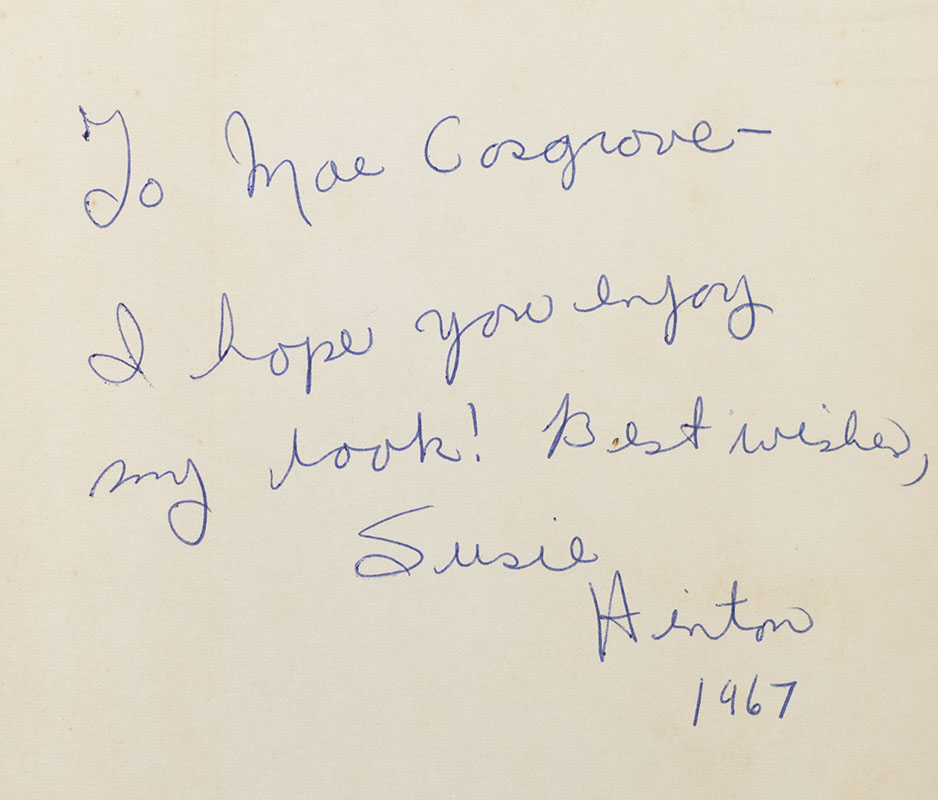 To Mae Cosgrove—
I hope you enjoy
my book! Best wishes,
Susie
Hinton
1967